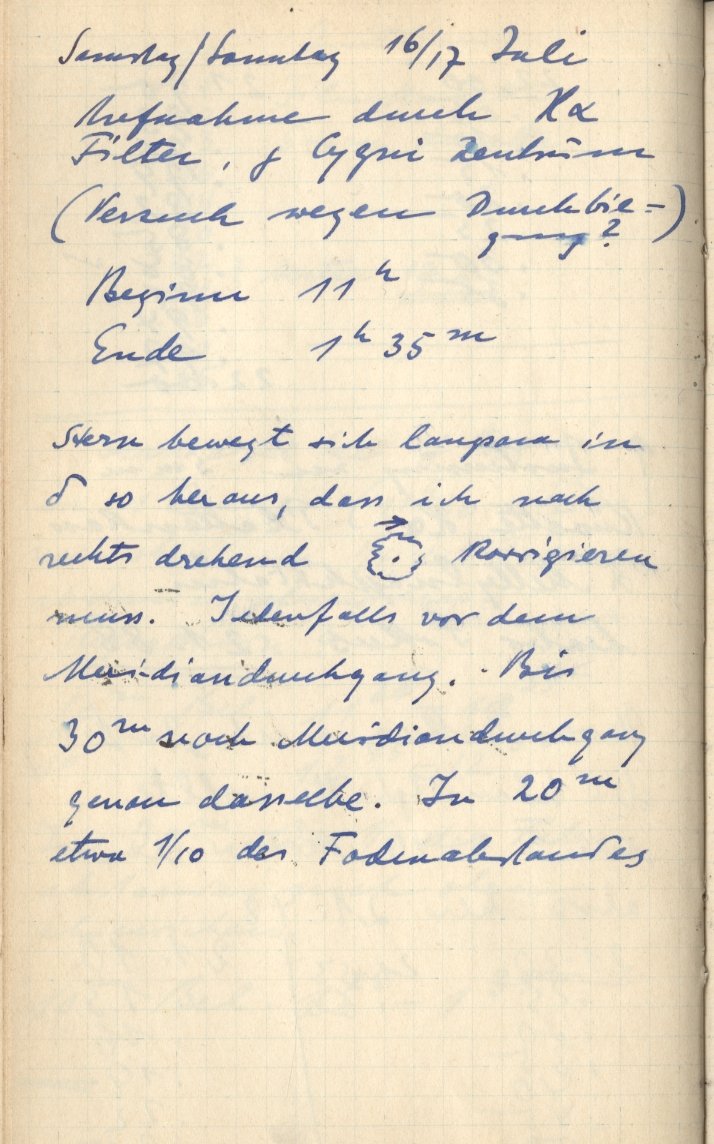 Samstag/Sonntag 16/17 Juli
Aufnahme durch Hα
Filter, γ Cygni Zentrum
(Versuch wegen Durchbie=)
gung?
Beginn 11ʰ
Ende 1ʰ 35ᵐ
Stern bewegt sich langsam in
δ so heraus, dass ich nach
rechts drehend korrigieren
muss. Jedenfalls vor dem
Meridiandurchgang. Bis
30ᵐ nach Meridiandurchgang
genau dasselbe. In 20ᵐ
etwa 1/10 des Fadenabstandes